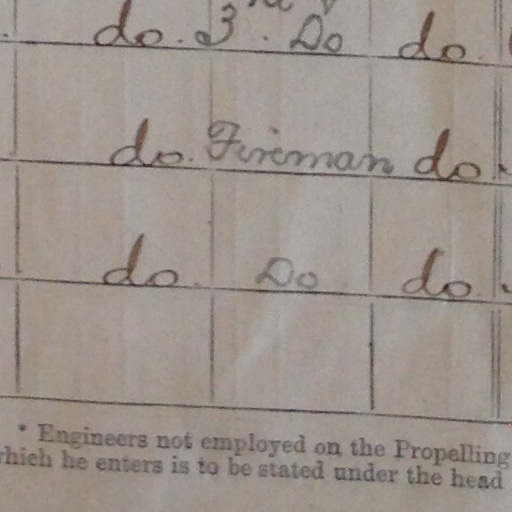 do. 3rd. Do do.
do. Fireman do.
do. Do do.
* Engineers not employed on the Propelling
which he enters is to be stated under the head